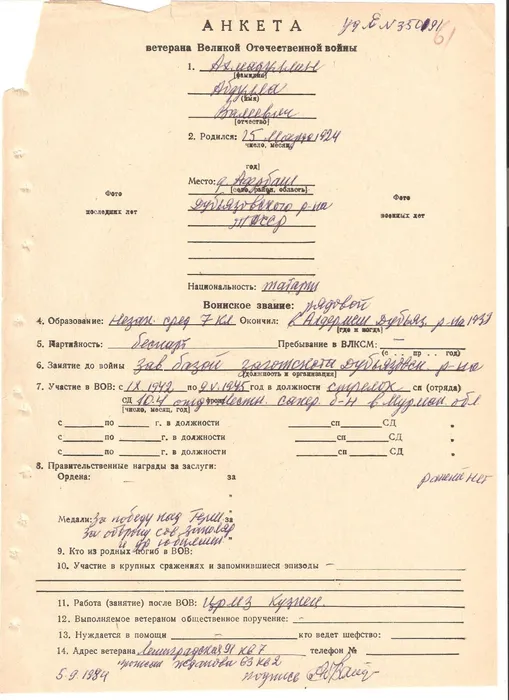 АНКЕТА
уд Я N 350191
61
ветерана Великой Отечественной войны
1. Ахмадуллин
(фамилия)
Абдулла
(имя)
Валеевич
(отчество)
2. Родился: 15 марта 1924
число, месяц,
год)
Место: д.
(село, район, область)
Дубъязовского р-на
ТАССР
Фото
последних лет
Фото
военных лет
Национальность: татарин
Воинское звание: рядовой
4. Образование: Незак сред 7 кл Окончил: с Алдермыш Дубъяз. р-на 1937
(где и когда)
5. Партийность: беспарт Пребывание в ВЛКСМ: —
(с . . по . . год)
6. Занятие до войны зав базой заготскота Дубъязовск р-на
(должность и организация)
7. Участие в ВОВ: с IX 1942 по 9.V.1945 год в должности стрелок сп (отряда)
СД 104 сапер б-н в Мурман обл
(число, месяц, год) фронта
с по г. в должности сп СД "
с по г. в должности сп СД "
с по г. в должности сп СД "
8. Правительственные награды за заслуги:
Ордена: за
ранений нет
"
"
Медали: За победу над Герм за
За оборону сов заполяр "
и др юбилейн "
9. Кто из родных погиб в ВОВ:
10. Участие в крупных сражениях и запомнившиеся эпизоды –
11. Работа (занятие) после ВОВ: ЦРМЗ Кузнец
12. Выполняемое ветераном общественное поручение: –
13. Нуждается в помощи – кто ведет шефство:
14. Адрес ветерана Ленинградская 91 кв 7 телефон №
Жданова 63 кв 2
5-9 1984 подпись